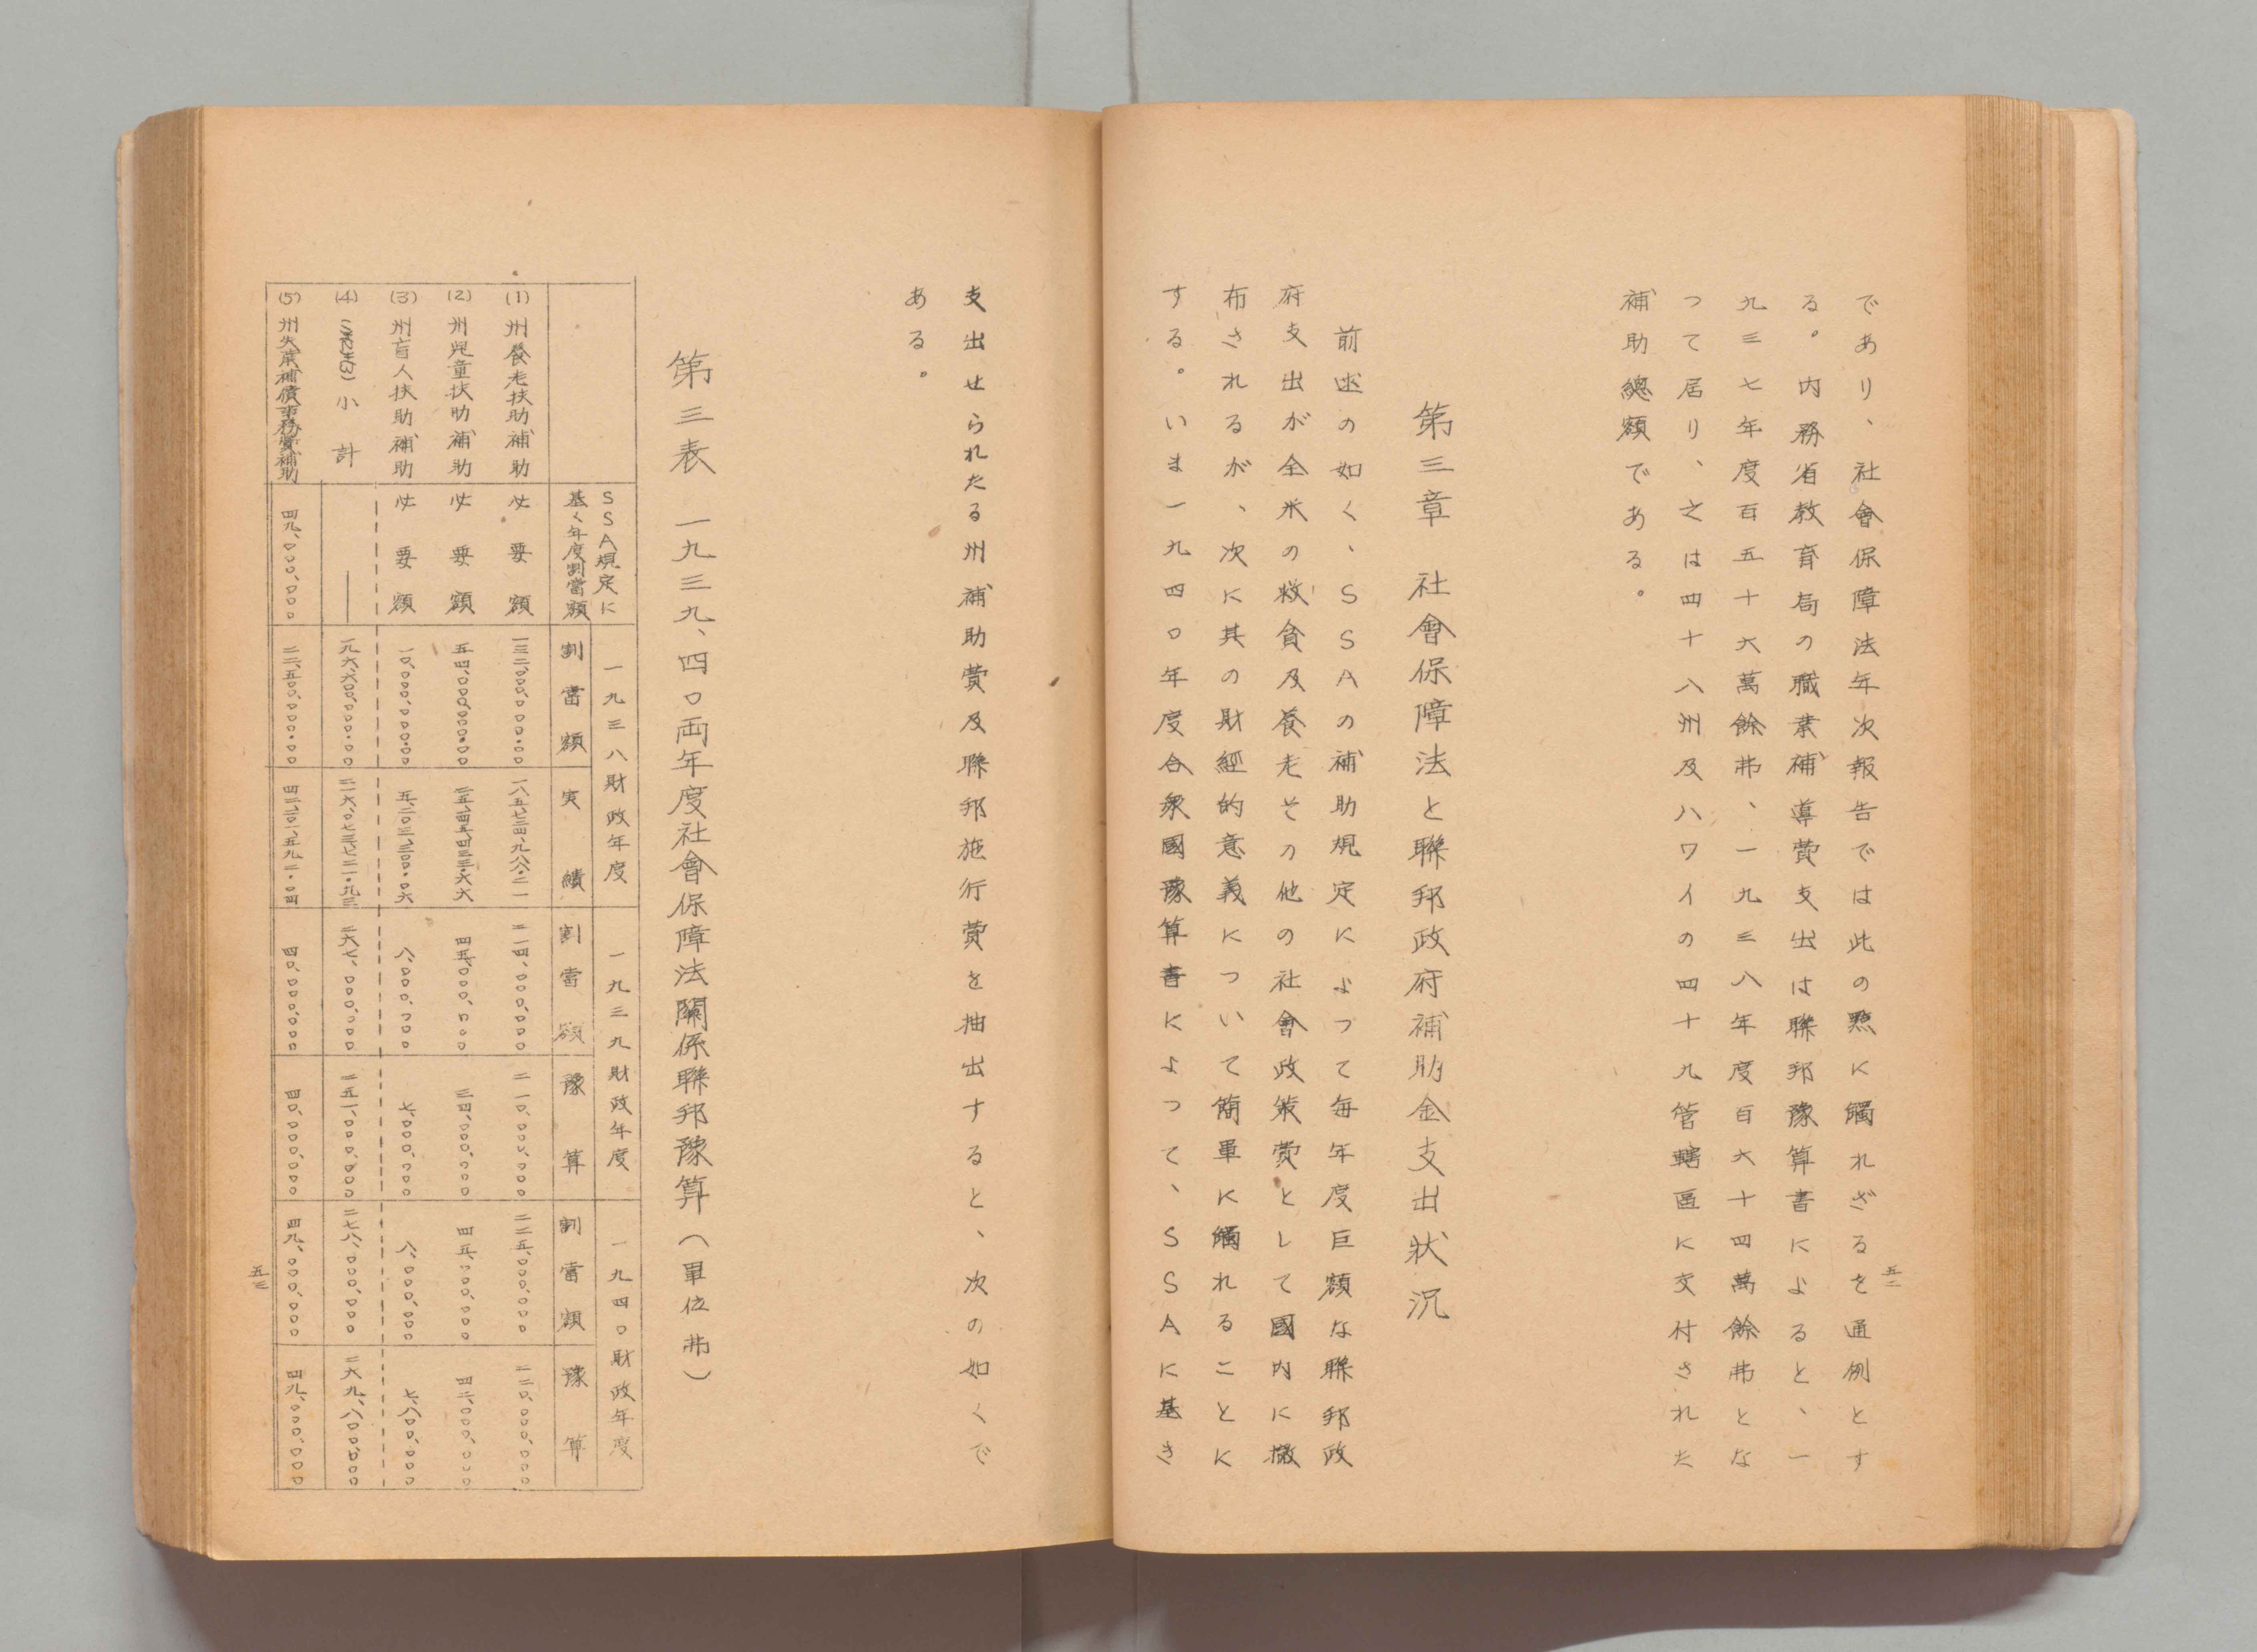 五二
であり、社會保障法年次報告では此の點に觸れざるを通例とす
る。内務省教育局の職業補導費支出は聯邦豫算書によると、一
九三七年度百五十六萬餘弗、一九三八年度百六十四萬餘弗とな
つて居り、之は四十八州及ハワイの四十九管轄區に交付された
補助總額である。
第三章 社會保障法と聯邦政府補助金支出狀況
前述の如く、SSAの補助規定によつて毎年度巨額な聯邦政
府支出が全米の救貧及養老その他の社會政策費として國内に撒
布されるが、次に其の財經的意義について簡單に觸れることに
する。いま一九四〇年度合衆國豫算書によつて、SSAに基き
支出せられたる州補助費及聯邦施行費を抽出すると、次の如くで
ある。
第三表 一九三九、四〇両年度社會保障法關係聯邦豫算(單位弗)
SSA規定に
基く年度割當額
一九三八財政年度
一九三九財政年度
一九四〇財政年度
割當額
実績
割當額
豫算
割當額
豫算
(1) 州養老扶助補助 必要額 一三二、〇〇〇、〇〇〇・〇〇 一八五、七三四、九八八・二一 二一四、〇〇〇、〇〇〇 二一〇、〇〇〇、〇〇〇 二二五、〇〇〇、〇〇〇 二二〇、〇〇〇、〇〇〇
(2) 州児童扶助補助 必要額 五四、〇〇〇、〇〇〇・〇〇 二五、四五、四三三・六六 四五、〇〇〇、〇〇〇 三四、〇〇〇、〇〇〇 四五、〇〇〇、〇〇〇 四二、〇〇〇、〇〇〇
(3) 州盲人扶助補助 必要額 一〇、〇〇〇、〇〇〇・〇〇 五、二〇三、三〇〇・〇六 八、〇〇〇、〇〇〇 七、〇〇〇、〇〇〇 八、〇〇〇、〇〇〇 七、八〇〇、〇〇〇
(4) 小計 ― 一九六、六〇〇、〇〇〇・〇〇 二一六、〇七三、七二一・九三 二六七、〇〇〇、〇〇〇 二五一、〇〇〇、〇〇〇 二七八、〇〇〇、〇〇〇 二六九、八〇〇、〇〇〇
(5) 州失業補償事務費補助 四九、〇〇〇、〇〇〇 二二、五〇〇、〇〇〇・〇〇 四二、二〇一、五九二・〇四 四〇、〇〇〇、〇〇〇 四〇、〇〇〇、〇〇〇 四九、〇〇〇、〇〇〇 四九、〇〇〇、〇〇〇
五三